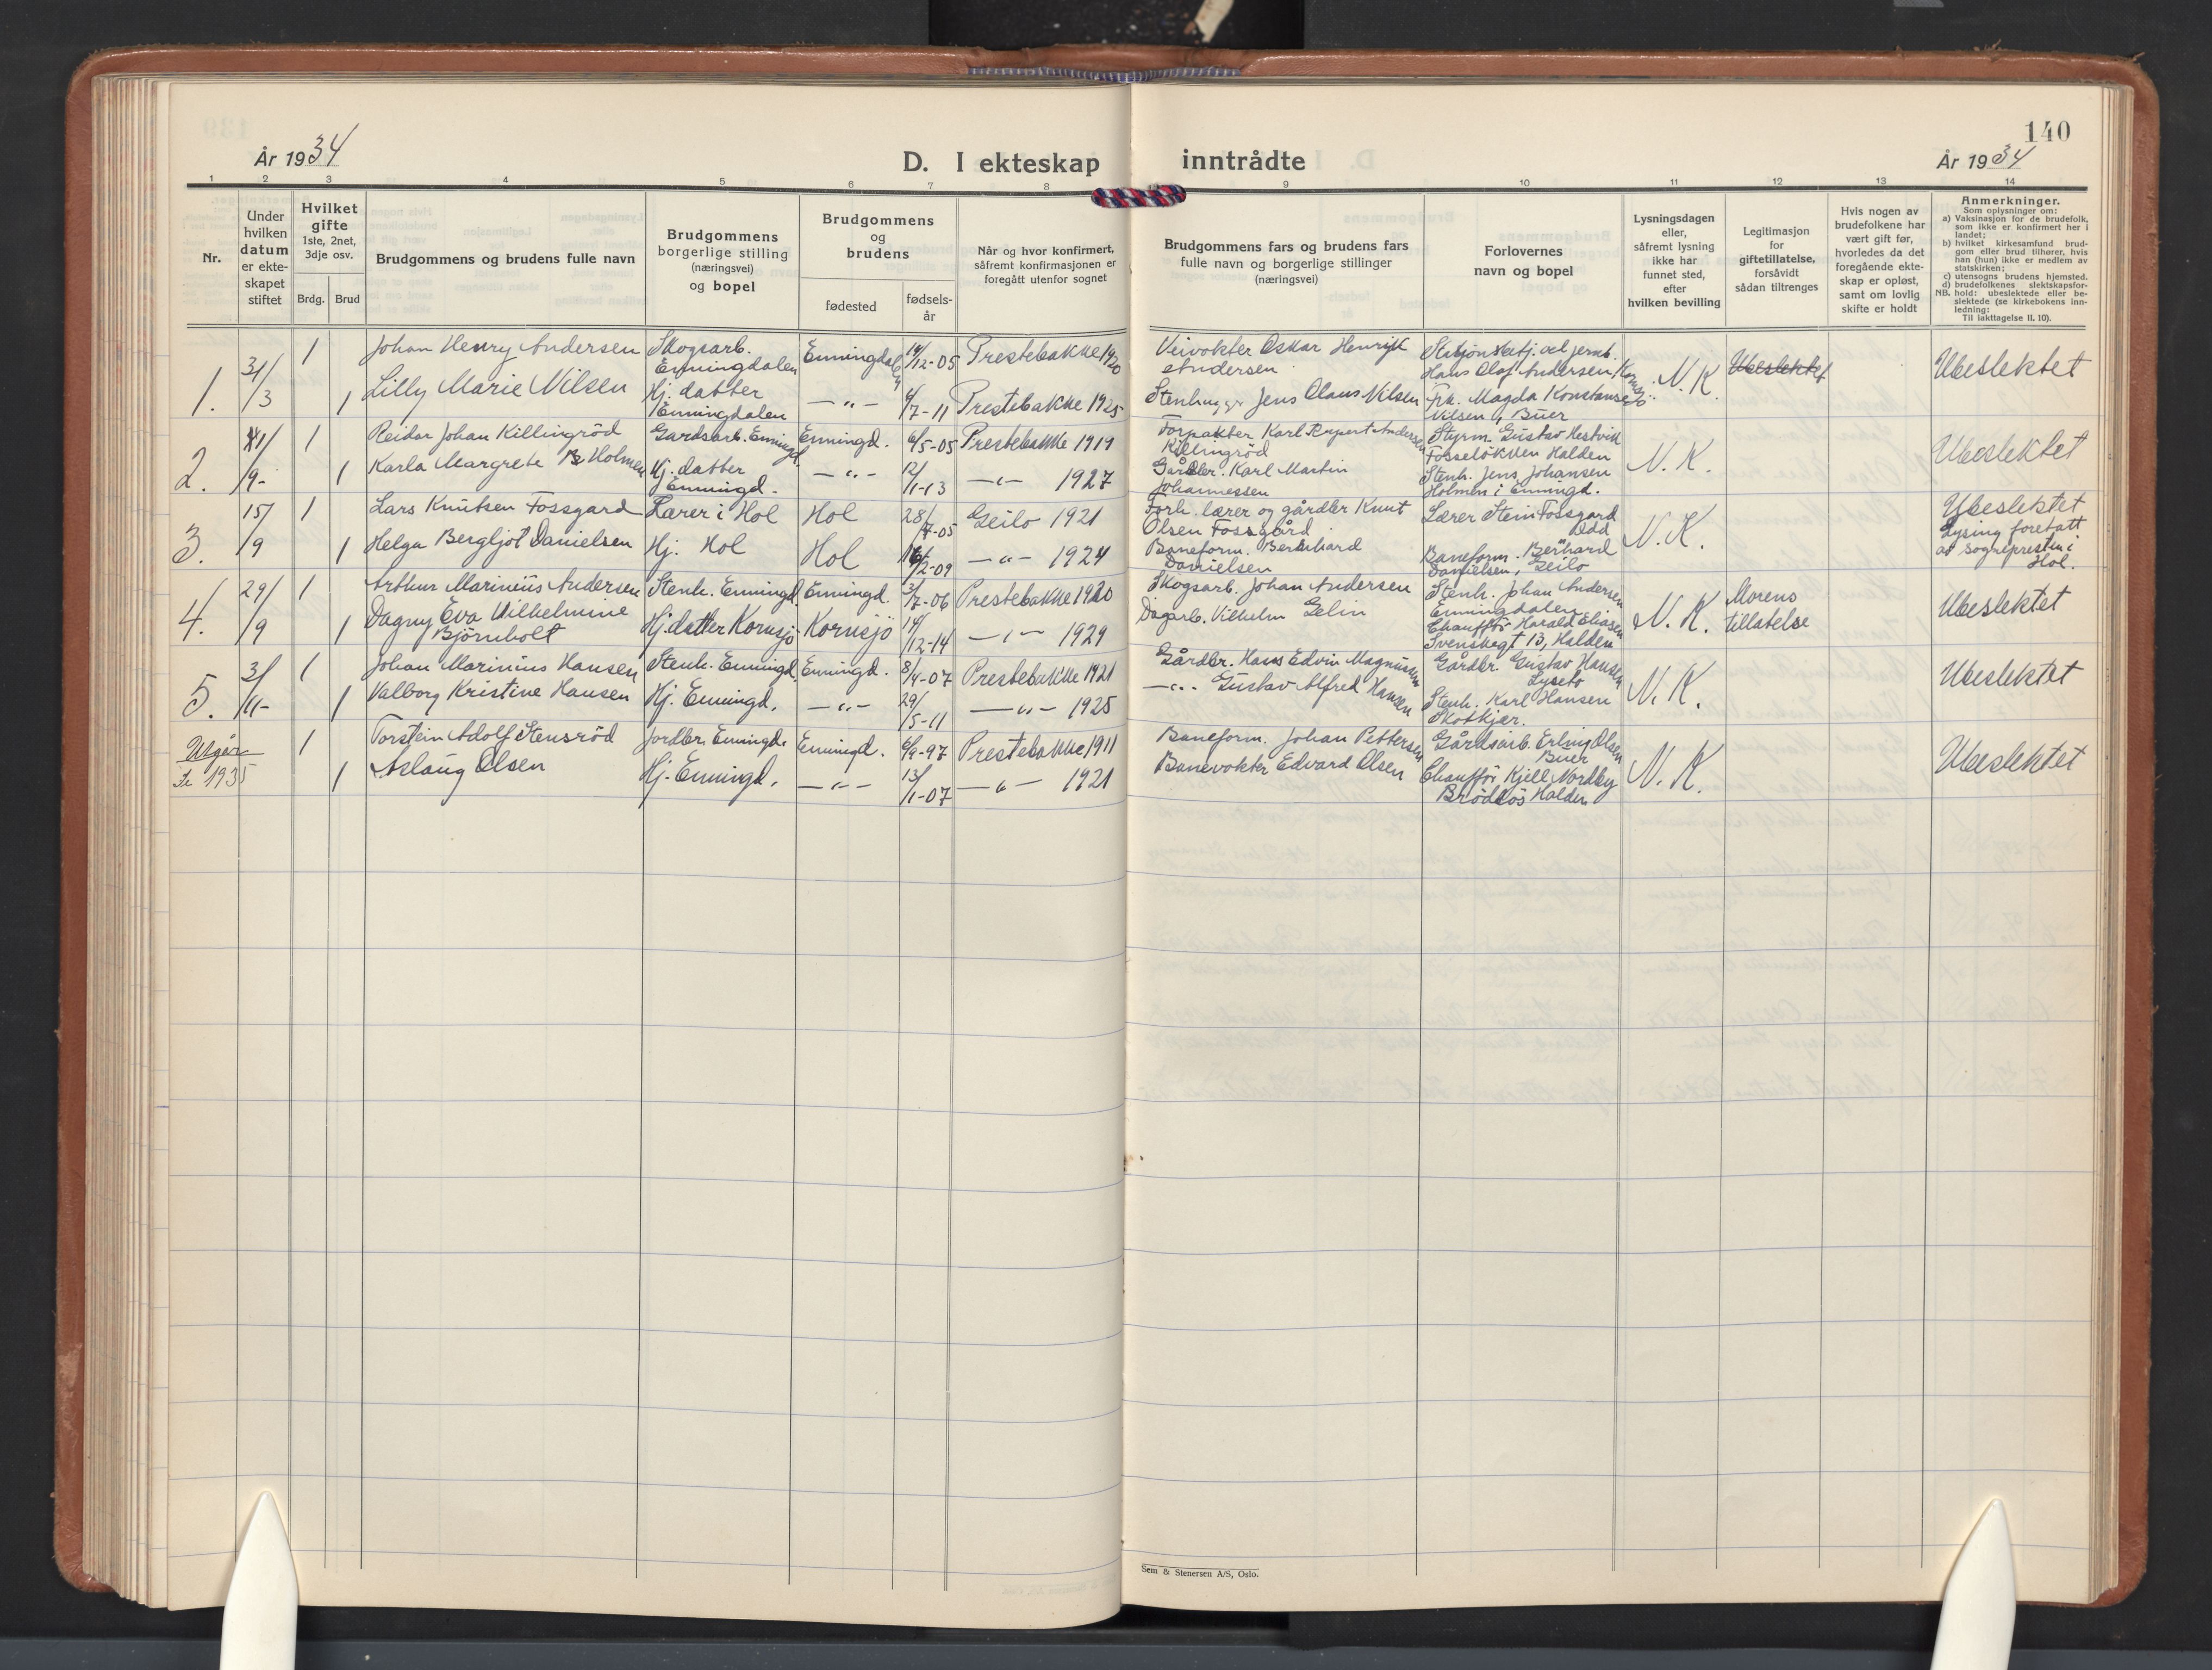 140
År 1934
D. I ekteskap inntrådte
År 1934
1 2 3 4 5 6 7 8 9 10 11 12 13 14
Nr.
Under
hvilken
datum
er ekte-
skapet
stiftet
Hvilket
gifte
1ste, 2net,
3dje osv.
Brdg. Brud
Brudgommens og brudens fulle navn
Brudgommens
borgerlige stilling
(næringsvei)
og bopel
Brudgommens
og
brudens
fødested
fødsels-
år
Når og hvor konfirmert,
såfremt konfirmasjonen er
foregått utenfor sognet
Brudgommens fars og brudens fars
fulle navn og borgerlige stillinger
(næringsvei)
Forlovernes
navn og bopel
Lysningsdagen
eller,
såfremt lysning
ikke har
funnet sted,
efter
hvilken bevilling
Legitimasjon
for
giftetillatelse,
forsåvidt
sådan tiltrenges
Hvis nogen av
brudefolkene har
vært gift før,
hvorledes da det
foregående ekte-
skap er opløst,
samt om lovlig
skifte er holdt
Anmerkninger.
Som oplysninger om:
a) Vaksinasjon for de brudefolk,
som ikke er konfirmert her i
landet;
b) hvilket kirkesamfund brud-
gom eller brud tilhører, hvis
han (hun) ikke er medlem av
statskirken;
c) utensogns brudens hjemsted.
d) brudefolkenes slektskapsfor-
NB. hold: ubeslektede eller be-
slektede (se kirkebokens inn-
ledning:
Til iakttagelse II, 10).
1. 31/3
1 Johan Henry Andersen Skogsarb. Enningdalen Enningdalen 14/12-05 Prestebakke 1920
Veivokter Oskar Henrik Andersen
Hans Olaf Andersen
1 Lilly Marie Nilsen Hj. datter Enningdalen —"— 6/7-11 Prestebakke 1925
Stenhugger Jens Olaus Nilsen
Frk. Magda Konstanse Nilsen, Buer
N. K. Ubeslektet Ubeslektet
2. /9-
1 Reidar Johan Killingröd Gardsarb. Enningd. Enningd. 6/5-05 Prestebakke 1919
Forpakter Karl Rupert Andersen Killingröd
Styrm. Gustav Hestvik Fosseløkken Halden
1 Karla Margrete Holmen Hj. datter Enningd. —"— 12/1-13 —"— 1927
Gårdbr. Karl Martin Johannessen
Stenh. Jens Johansen Holmen i Enningd.
N. K. Ubeslektet
3. 15/9
1 Lars Knutsen Fossgard Lærer i Hol Hol 28/7-05 Geilo 1921
Forh. lærer og gårdbr Knut Olsen Fossgård
Lærer Stein Fossgard
1 Helga Bergljot Danielsen Hj. Hol Hol /2-09 —"— 1924
Baneform. Bernhard Danielsen
Baneform. Bernhard Danielsen, Geilo
N. K. Ubeslektet
Lysing foretatt
av sognepresten i
Hol.
4. 29/9
1 Arthur Marinius Andersen Stenh. Enningd. Enningd. 3/7-06 Prestebakke 1920
Skogsarb. Johan Andersen
Stenh. Johan Andersen Enningdalen
1 Dagny Eva Wilhelmine Bjørnholt Hj. datter Kornsjø Kornsjø 14/12-14 —"— 1929
Dagarb. Vilhelm Gelin
Chauffør Harald Eliasen Svenskegt 13, Halden
N. K. Morens tillatelse Ubeslektet
5. 3/11-
1 Johan Marinius Hansen Stenh. Enningd. Enningd. 8/4-07 Prestebakke 1921
Gårdbr. Hans Edvin Magnussen
Gårdbr. Gustav Hansen
1 Valborg Kristine Hansen Hj. Enningd. —"— 29/5-11 —"— 1925
—"— Gustav Alfred Hansen
Stenh. Karl Hansen Skotkjær.
N. K. Ubeslektet
Utgår
Se 1935
1 Torstein Adolf Stensröd Jordbr. Enningd. Enningd. 6/9-97 Prestebakke 1911
Baneform. Johan Pettersen
Gårdsarb. Erling Olsen Buer
1 Aslaug Olsen Hj. Enningd. —"— 13/1-07 —"— 1921
Banevokter Edvard Olsen
Chauffør Kjell Nordby Brødløs Halden
N. K. Ubeslektet
Sem & Stenersen A/S, Oslo.